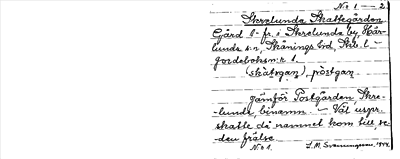 No 1 — 2
Skrelunda Skattegården
Gård l. fr. i Skrelunda by, Här-
lunda sn, Skånings hd, Skb. l.
jordeboksnr 1.
(skatsgan), postgan
jämför Postgården, Skre-
lunda, binamn. — Väl urspr.
skatte då namnet kom till, se-
dan frälse.
No 1. S. M. 1944.